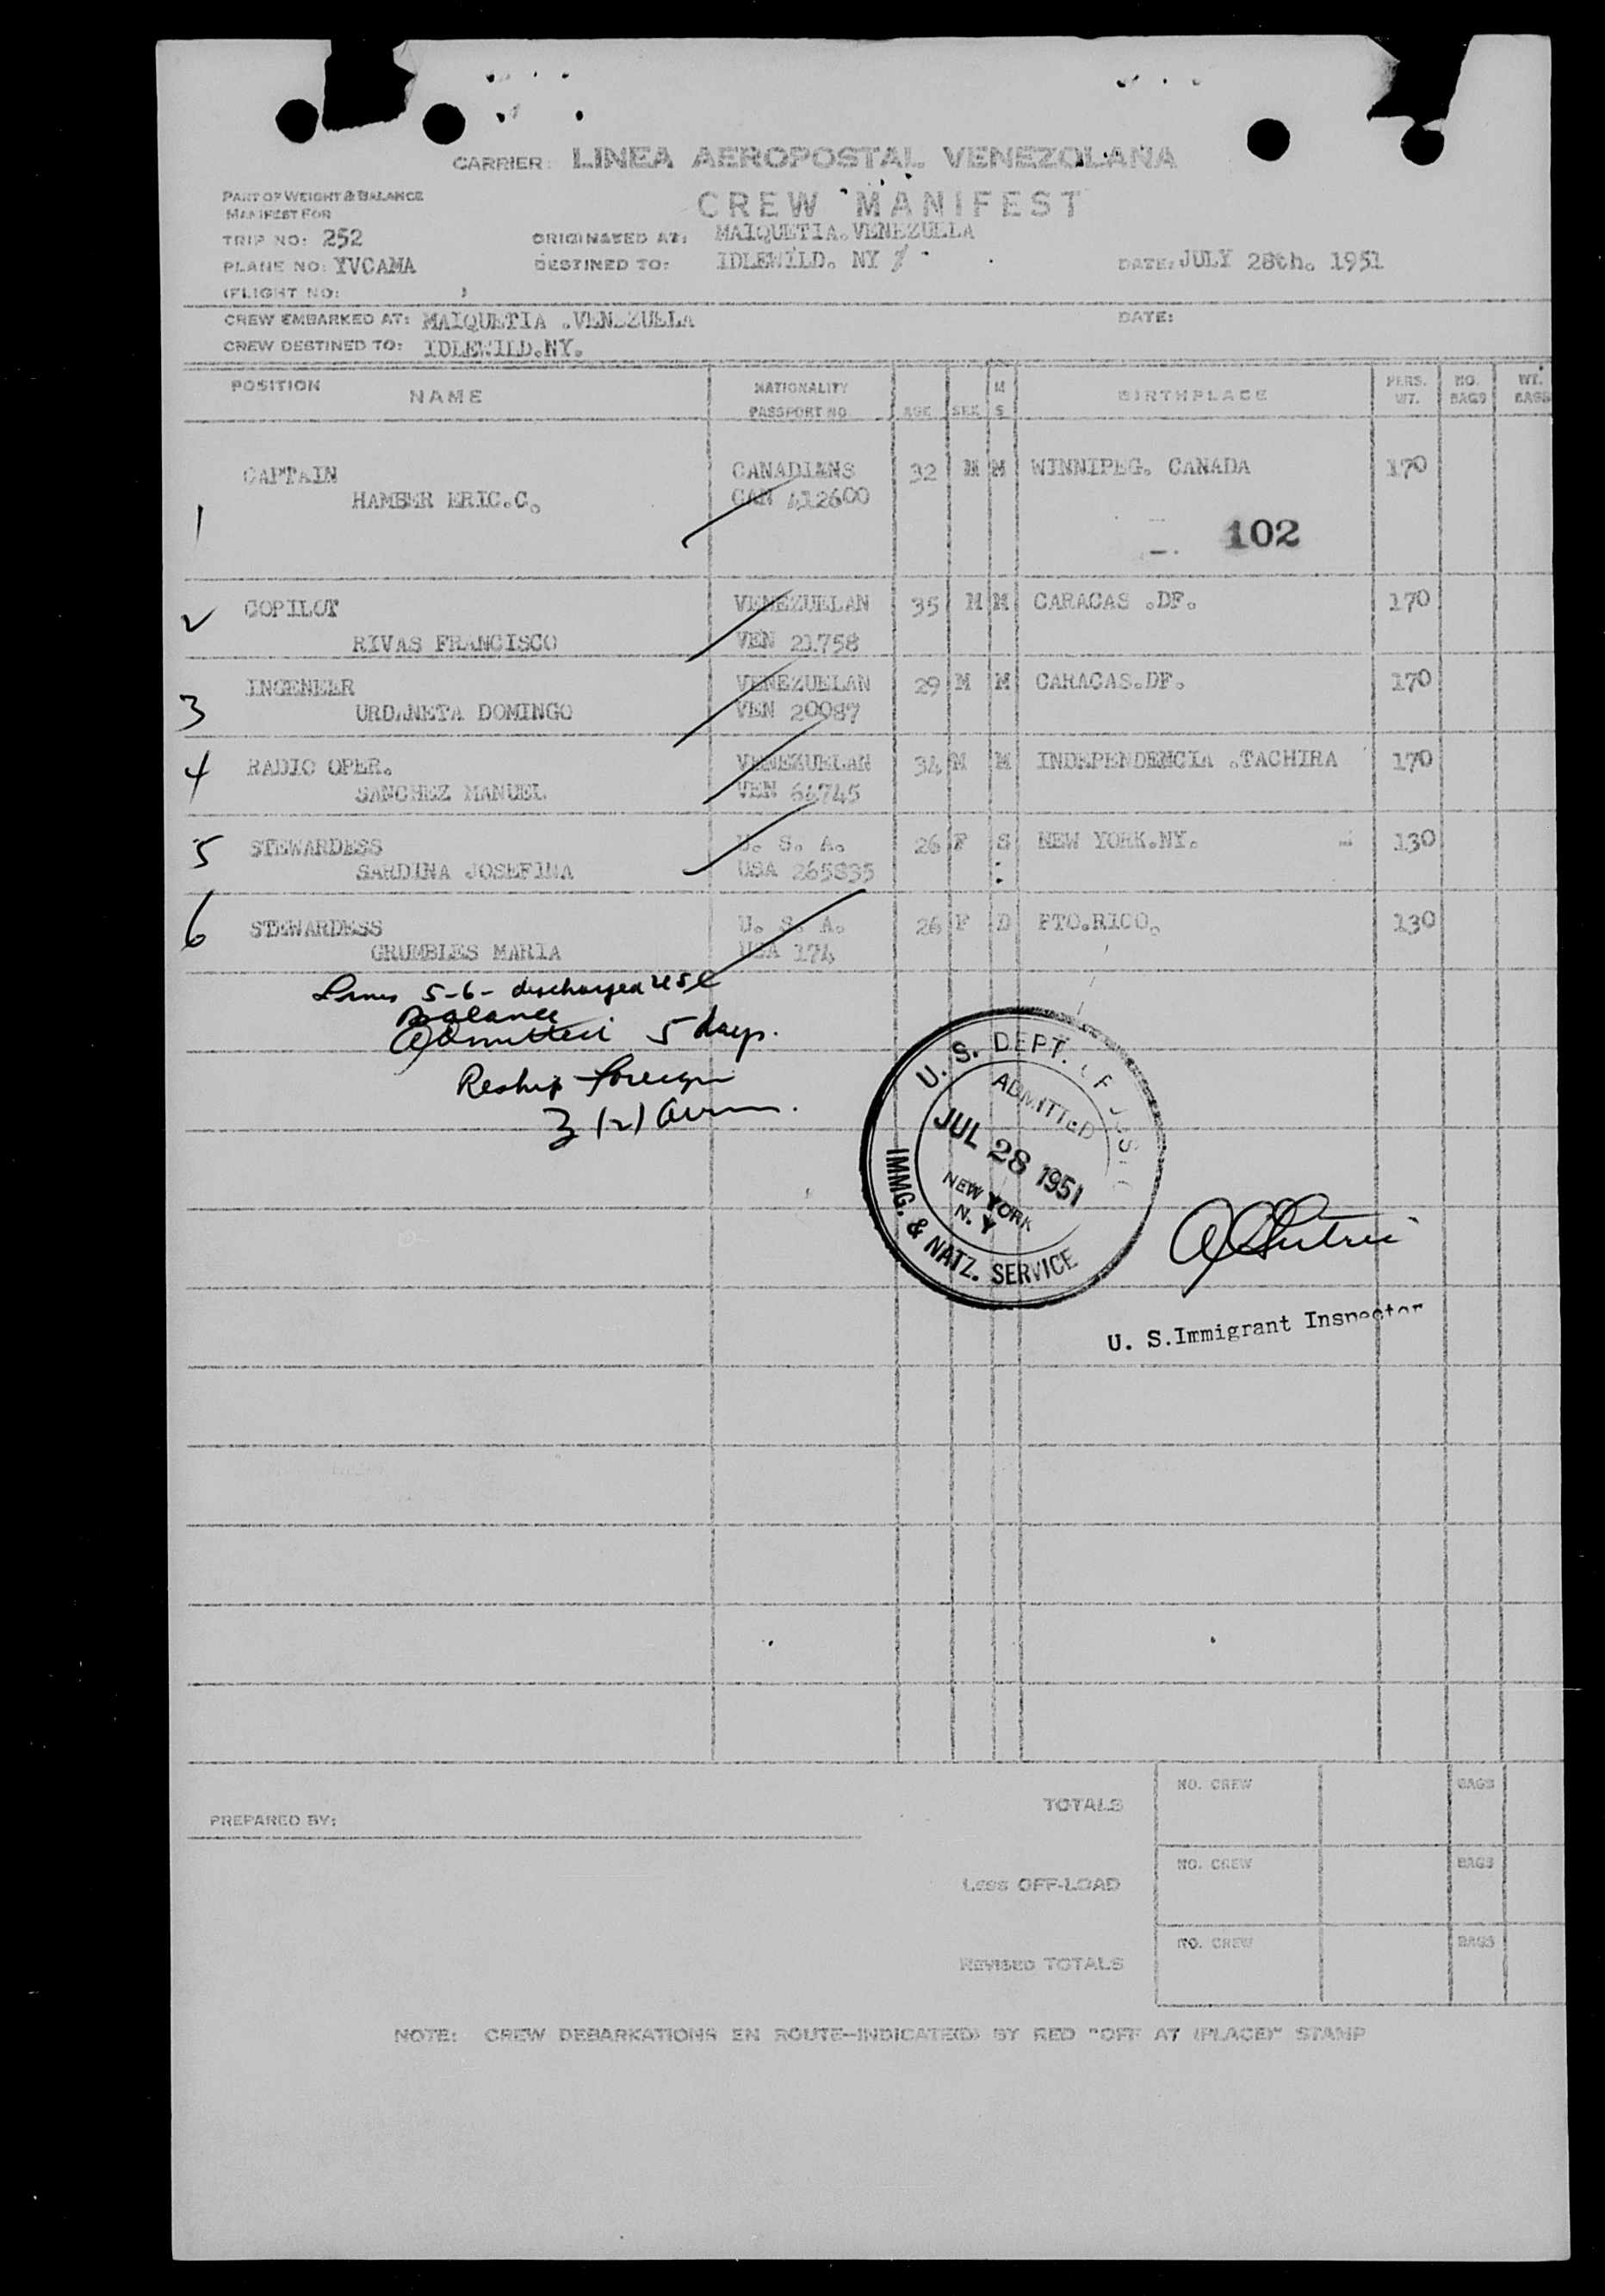 CARRIER: LINEA AEROPOSTAL VENEZOLANA
PART OF WEIGHT & BALANCE
MANIFEST FOR
CREW MANIFEST
TRIP NO: 252 ORIGINATED AT: MAIQUETIA. VENEZUELA
PLANE NO: YVCAMA DESTINED TO: IDLEWILD. NY DATE: JULY 28th. 1951
(FLIGHT NO: )
CREW EMBARKED AT: MAIQUETIA .VENEZUELA DATE:
CREW DESTINED TO: IDLEWILD.NY.
POSITION NAME NATIONALITY PASSPORT NO AGE SEX M S BIRTHPLACE PERS. WT. NO. BAGS WT. BAGS
CAPTAIN CANADIANS 32 M M WINNIPEG. CANADA 170
1 HAMBER ERIC.C. CAN 412600
102
2 COPILOT VENEZUELAN 35 M M CARACAS .DF. 170
RIVAS FRANCISCO VEN 21758
INGENEER VENEZUELAN 29 M M CARACAS.DF. 170
3 URDANETA DOMINGO VEN 20087
4 RADIO OPER. VENEZUELAN 34 M M INDEPENDENCIA .TACHIRA 170
SANCHEZ MANUEL VEN 64745
5 STEWARDESS U. S. A. 26 F S NEW YORK.NY. 130
SARDINA JOSEFINA USA 265835
6 STEWARDESS U. S. A. 26 F D PTO.RICO. 130
GRUMBLES MARIA USA 174
5-6- discharged USC
Balance
Admitted 5 days.
Reship foreign
3 (2)
U. S. DEPT. OF JUSTICE
ADMITTED
JUL 28 1951
NEW YORK
N. Y
IMMG. & NATZ. SERVICE
U. S.Immigrant Inspector
PREPARED BY:
TOTALS NO. CREW BAGS
Less OFF-LOAD NO. CREW BAGS
REVISED TOTALS NO. CREW BAGS
NOTE: CREW DEBARKATIONS EN ROUTE-INDICATE(D) BY RED "OFF AT (PLACE)" STAMP